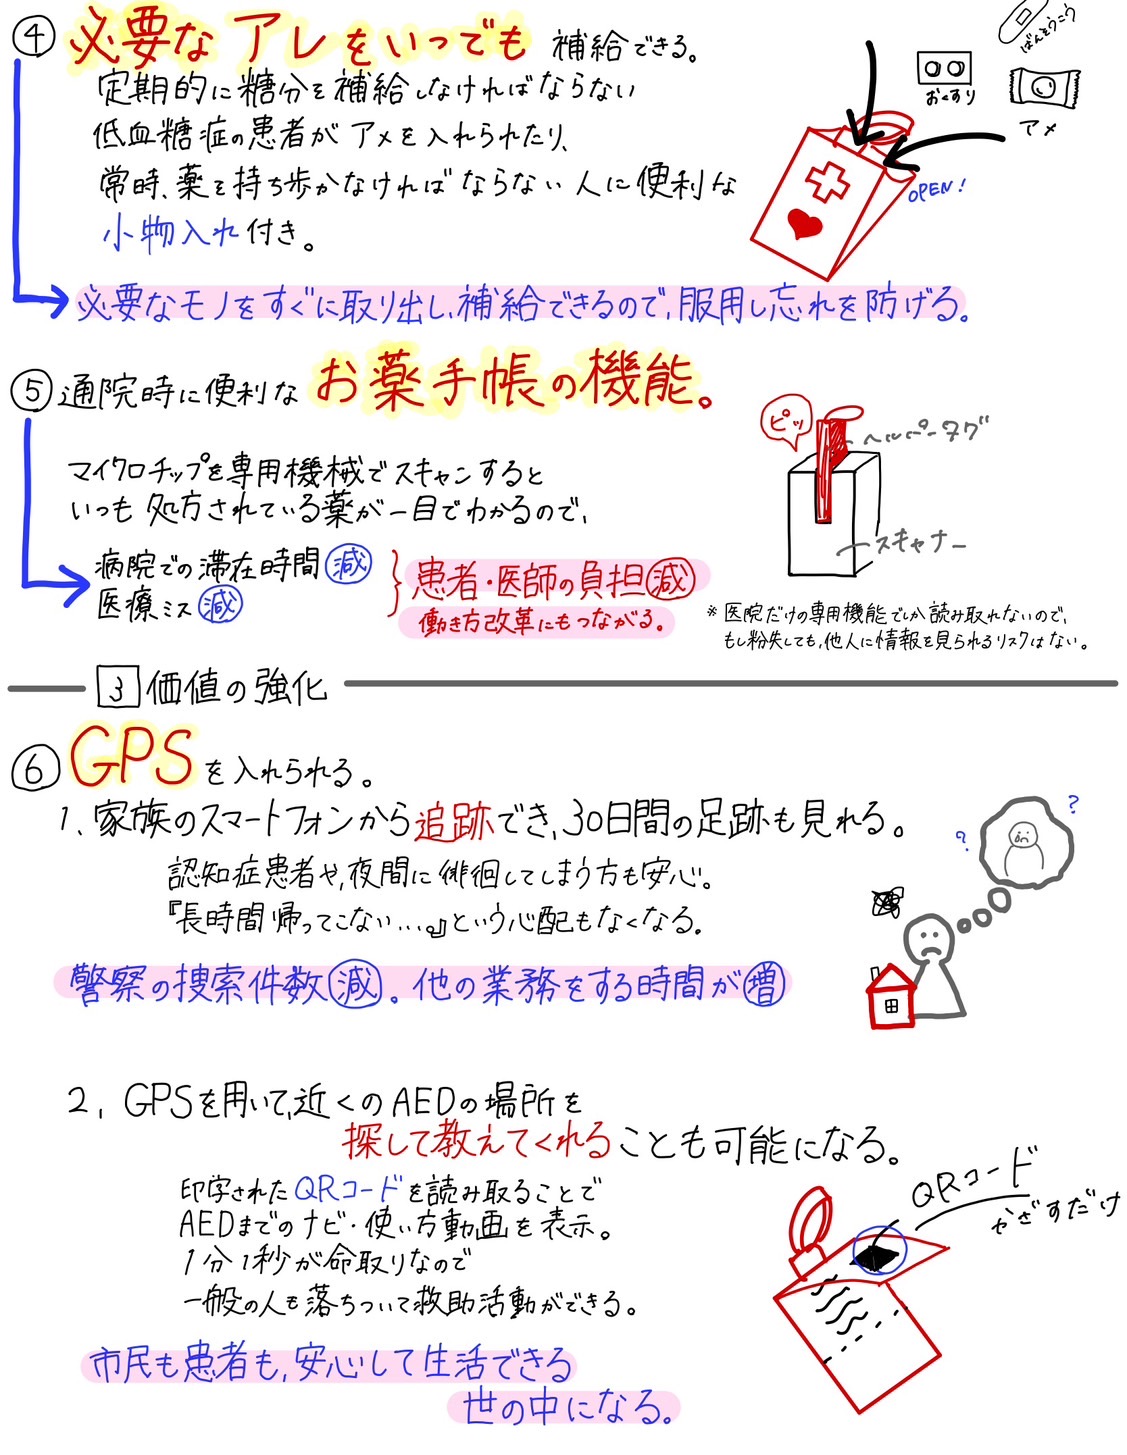 ④ 必要な アレ をいつでも 補給できる。
定期的に糖分を補給しなければならない
低血糖症の患者が アメを入れられたり、
常時、薬を持ち歩かなければならない人に便利な
小物入れ付き。
ばんそうこう
おくすり
アメ
OPEN!
必要なモノをすぐに取り出し、補給できるので、服用し忘れを防げる。
⑤ 通院時に便利な お薬手帳の機能。
マイクロチップを専用機械でスキャンすると
いつも処方されている薬が一目でわかるので、
病院での滞在時間 減
医療ミス 減
患者・医師の負担 減
働き方改革にもつながる。
ピッ
ヘルパータグ
スキャナー
※医院だけの専用機能でしか読み取れないので、
もし紛失しても、他人に情報を見られるリスクはない。
3 価値の強化
⑥ GPSを入れられる。
1、家族のスマートフォンから追跡でき、30日間の足跡も見れる。
認知症患者や、夜間に徘徊してしまう方も安心。
『長時間帰ってこない...。』という心配もなくなる。
? ?
警察の捜索件数 減。他の業務をする時間が 増
2, GPSを用いて、近くのAEDの場所を
探して教えてくれることも可能になる。
印字されたQRコードを読み取ることで
AEDまでのナビ・使い方動画を表示。
1分1秒が命取りなので
一般の人も落ちついて救助活動ができる。
QRコード
かざすだけ
市民も患者も、安心して生活できる
世の中になる。